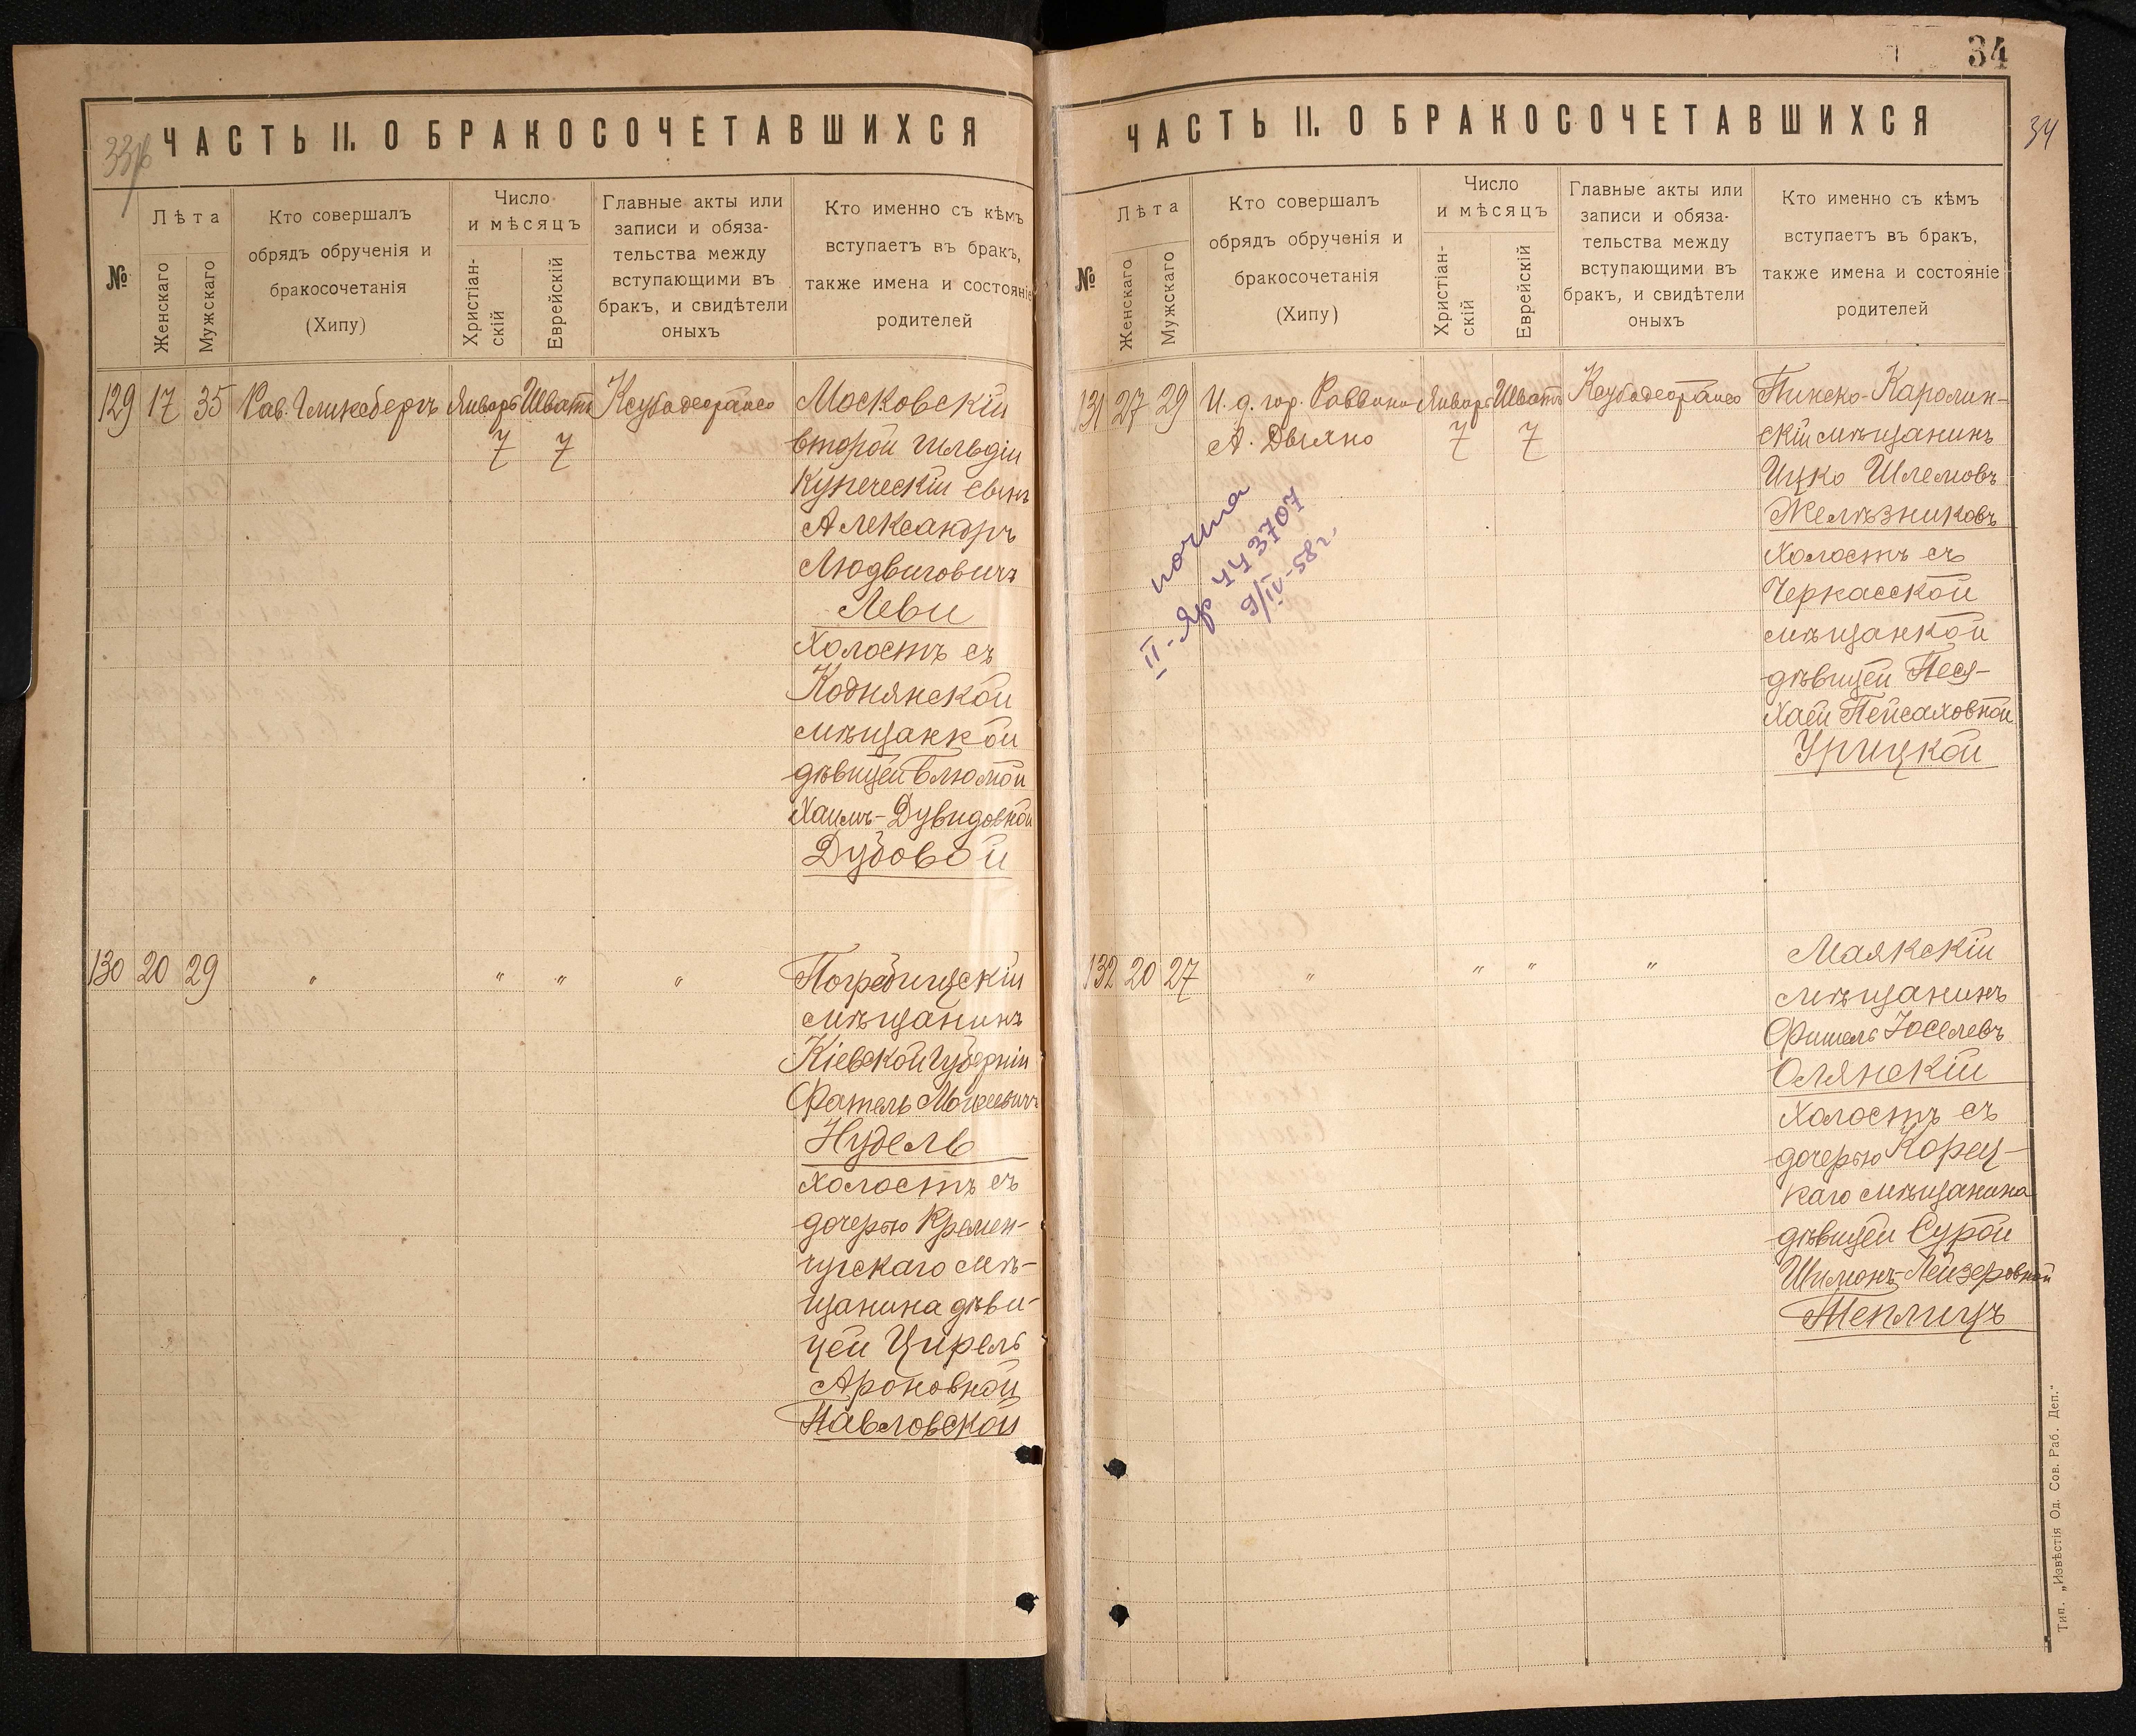 33об
ЧАСТЬ II. О БРАКОСОЧЕТАВШИХСЯ
№
Лѣта
Женскаго
Мужскаго
Кто совершалъ
обрядъ обрученія и
бракосочетанія
(Хипу)
Число
и мѣсяцъ
Христіан-
скій
Еврейскій
Главные акты или
записи и обяза-
тельства между
вступающими въ
бракъ, и свидѣтели
оныхъ
Кто именно съ кѣмъ
вступаетъ въ бракъ,
также имена и состояніе
родителей
129 17 35 Рав. Гликсбергъ Январь Шватъ Ксубадеорайсо
7 7
Московскій
второй гильдіи
Купеческій сынъ
Александръ
Людвиговичъ
Леви
холостъ съ
Коднянской
мѣщанкой
дѣвицей Блюмой
Хаимъ-Дувидовной
Дубовой
130 20 29 " " " "
Погребищскій
мѣщанинъ
Кіевской Губерніи
Фатель Моисеевичъ
Нудель
холостъ съ
дочерью Кремен-
чугскаго мѣ-
щанина дѣви-
цей Цирель
Ароновной
Павловской
34
34
ЧАСТЬ II. О БРАКОСОЧЕТАВШИХСЯ
№
Лѣта
Женскаго
Мужскаго
Кто совершалъ
обрядъ обрученія и
бракосочетанія
(Хипу)
Число
и мѣсяцъ
Христіан-
скій
Еврейскій
Главные акты или
записи и обяза-
тельства между
вступающими въ
бракъ, и свидѣтели
оныхъ
Кто именно съ кѣмъ
вступаетъ въ бракъ,
также имена и состояніе
родителей
131 27 29 И. д. гор. Раввина Январь Шватъ Ксубадеорайсо
А. Дыхно 7 7
Пинско-Каролин-
скій мѣщанинъ
Ицко Шлемовъ
Желѣзниковъ
холостъ съ
Черкасской
мѣщанкой
дѣвицей Песя-
Хаей Пейсаховной
Урицкой
почта
II-Яр 443707
9/IV-58г.
132 20 27 " " " "
Маякскій
мѣщанинъ
Фишель Іоселевъ
Олянскій
холостъ съ
дочерью Корец-
каго мѣщанина
дѣвицей Сурой
Шимонъ-Лейзеровной
Теплицъ
Тип. „Извѣстія Од. Сов. Раб. Деп."